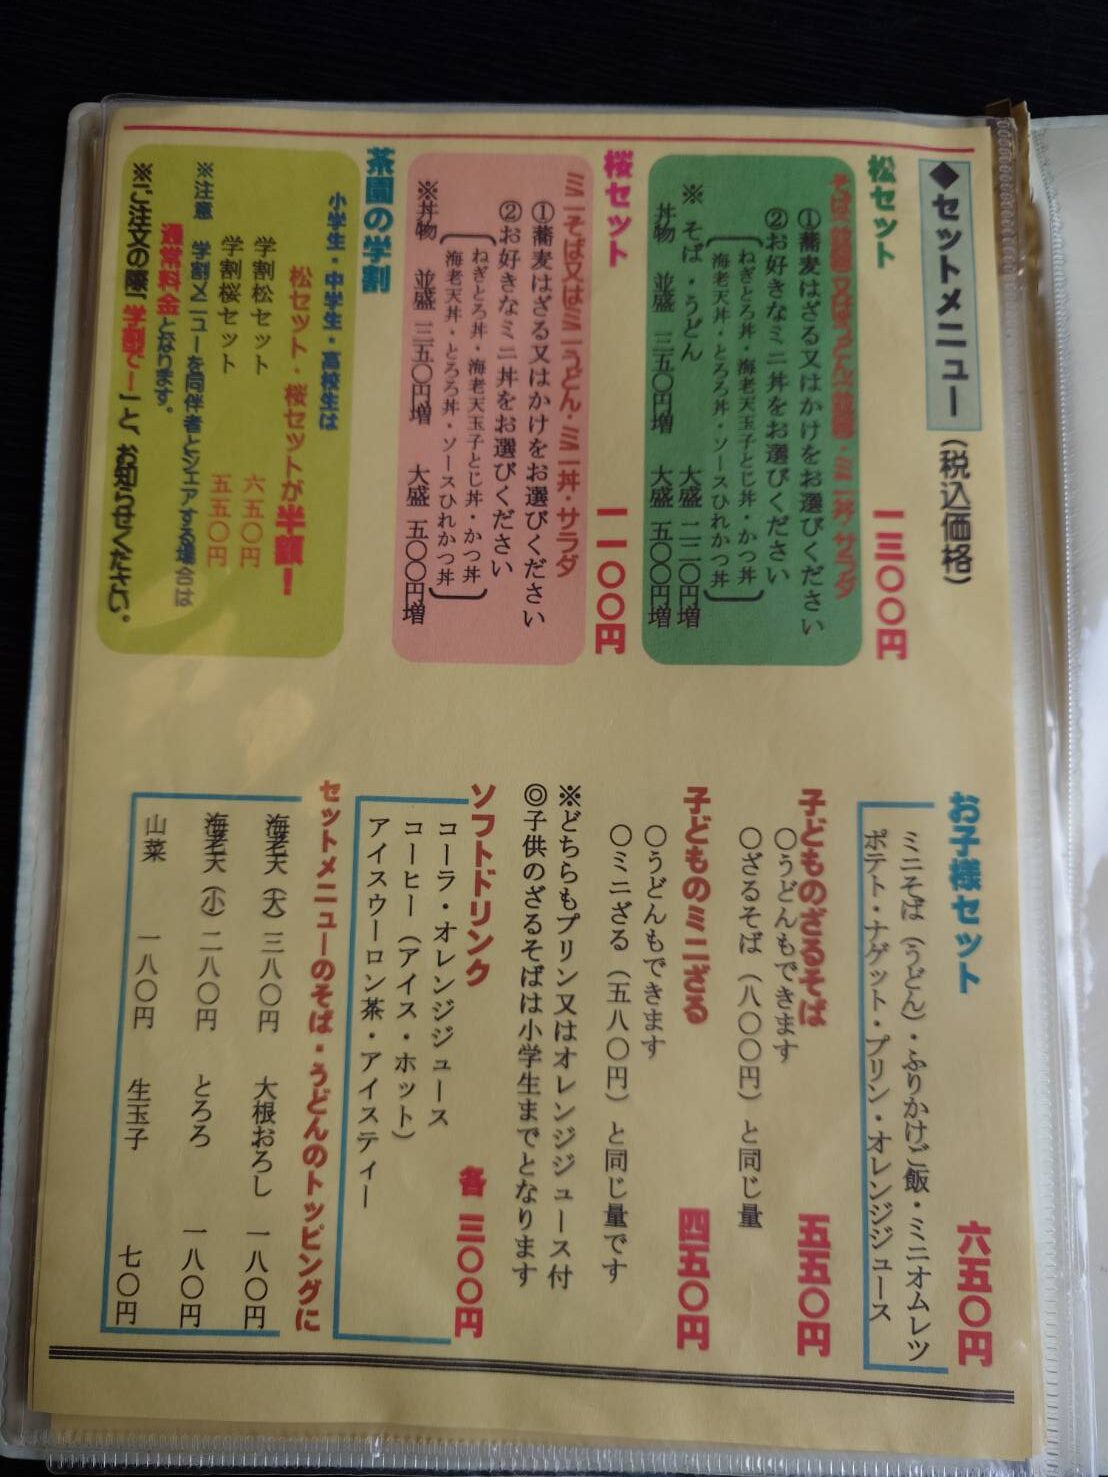 ◆セットメニュー(税込価格)
松セット 一三〇〇円
そば(普通)又はうどん(普通)・ミニ丼・サラダ
①蕎麦はざる又はかけをお選びください
②お好きなミニ丼をお選びください
ねぎとろ丼・海老天玉子とじ丼・かつ丼
海老天丼・とろろ丼・ソースひれかつ丼
※ そば・うどん 大盛 二二〇円増
丼物 並盛 三五〇円増 大盛 五〇〇円増
桜セット 一一〇〇円
ミニそば又はミニうどん・ミニ丼・サラダ
①蕎麦はざる又はかけをお選びください
②お好きなミニ丼をお選びください
ねぎとろ丼・海老天玉子とじ丼・かつ丼
海老天丼・とろろ丼・ソースひれかつ丼
※丼物 並盛 三五〇円増 大盛 五〇〇円増
茶園の学割
小学生・中学生・高校生は
松セット・桜セットが半額!
学割松セット 六五〇円
学割桜セット 五五〇円
※注意 学割メニューを同伴者とシェアする場合は
通常料金となります。
※ご注文の際「学割で!」と、お知らせください。
お子様セット 六五〇円
ミニそば(うどん)・ふりかけご飯・ミニオムレツ
ポテト・ナゲット・プリン・オレンジジュース
子どものざるそば 五五〇円
〇うどんもできます
〇ざるそば(八〇〇円)と同じ量
子どものミニざる 四五〇円
〇うどんもできます
〇ミニざる(五八〇円)と同じ量です
※どちらもプリン又はオレンジジュース付
◎子供のざるそばは小学生までとなります
ソフトドリンク 各 三〇〇円
コーラ・オレンジジュース
コーヒー(アイス・ホット)
アイスウーロン茶・アイスティー
セットメニューのそば・うどんのトッピングに
海老天(大)三八〇円 大根おろし 一八〇円
海老天(小)二八〇円 とろろ 一八〇円
山菜 一八〇円 生玉子 七〇円